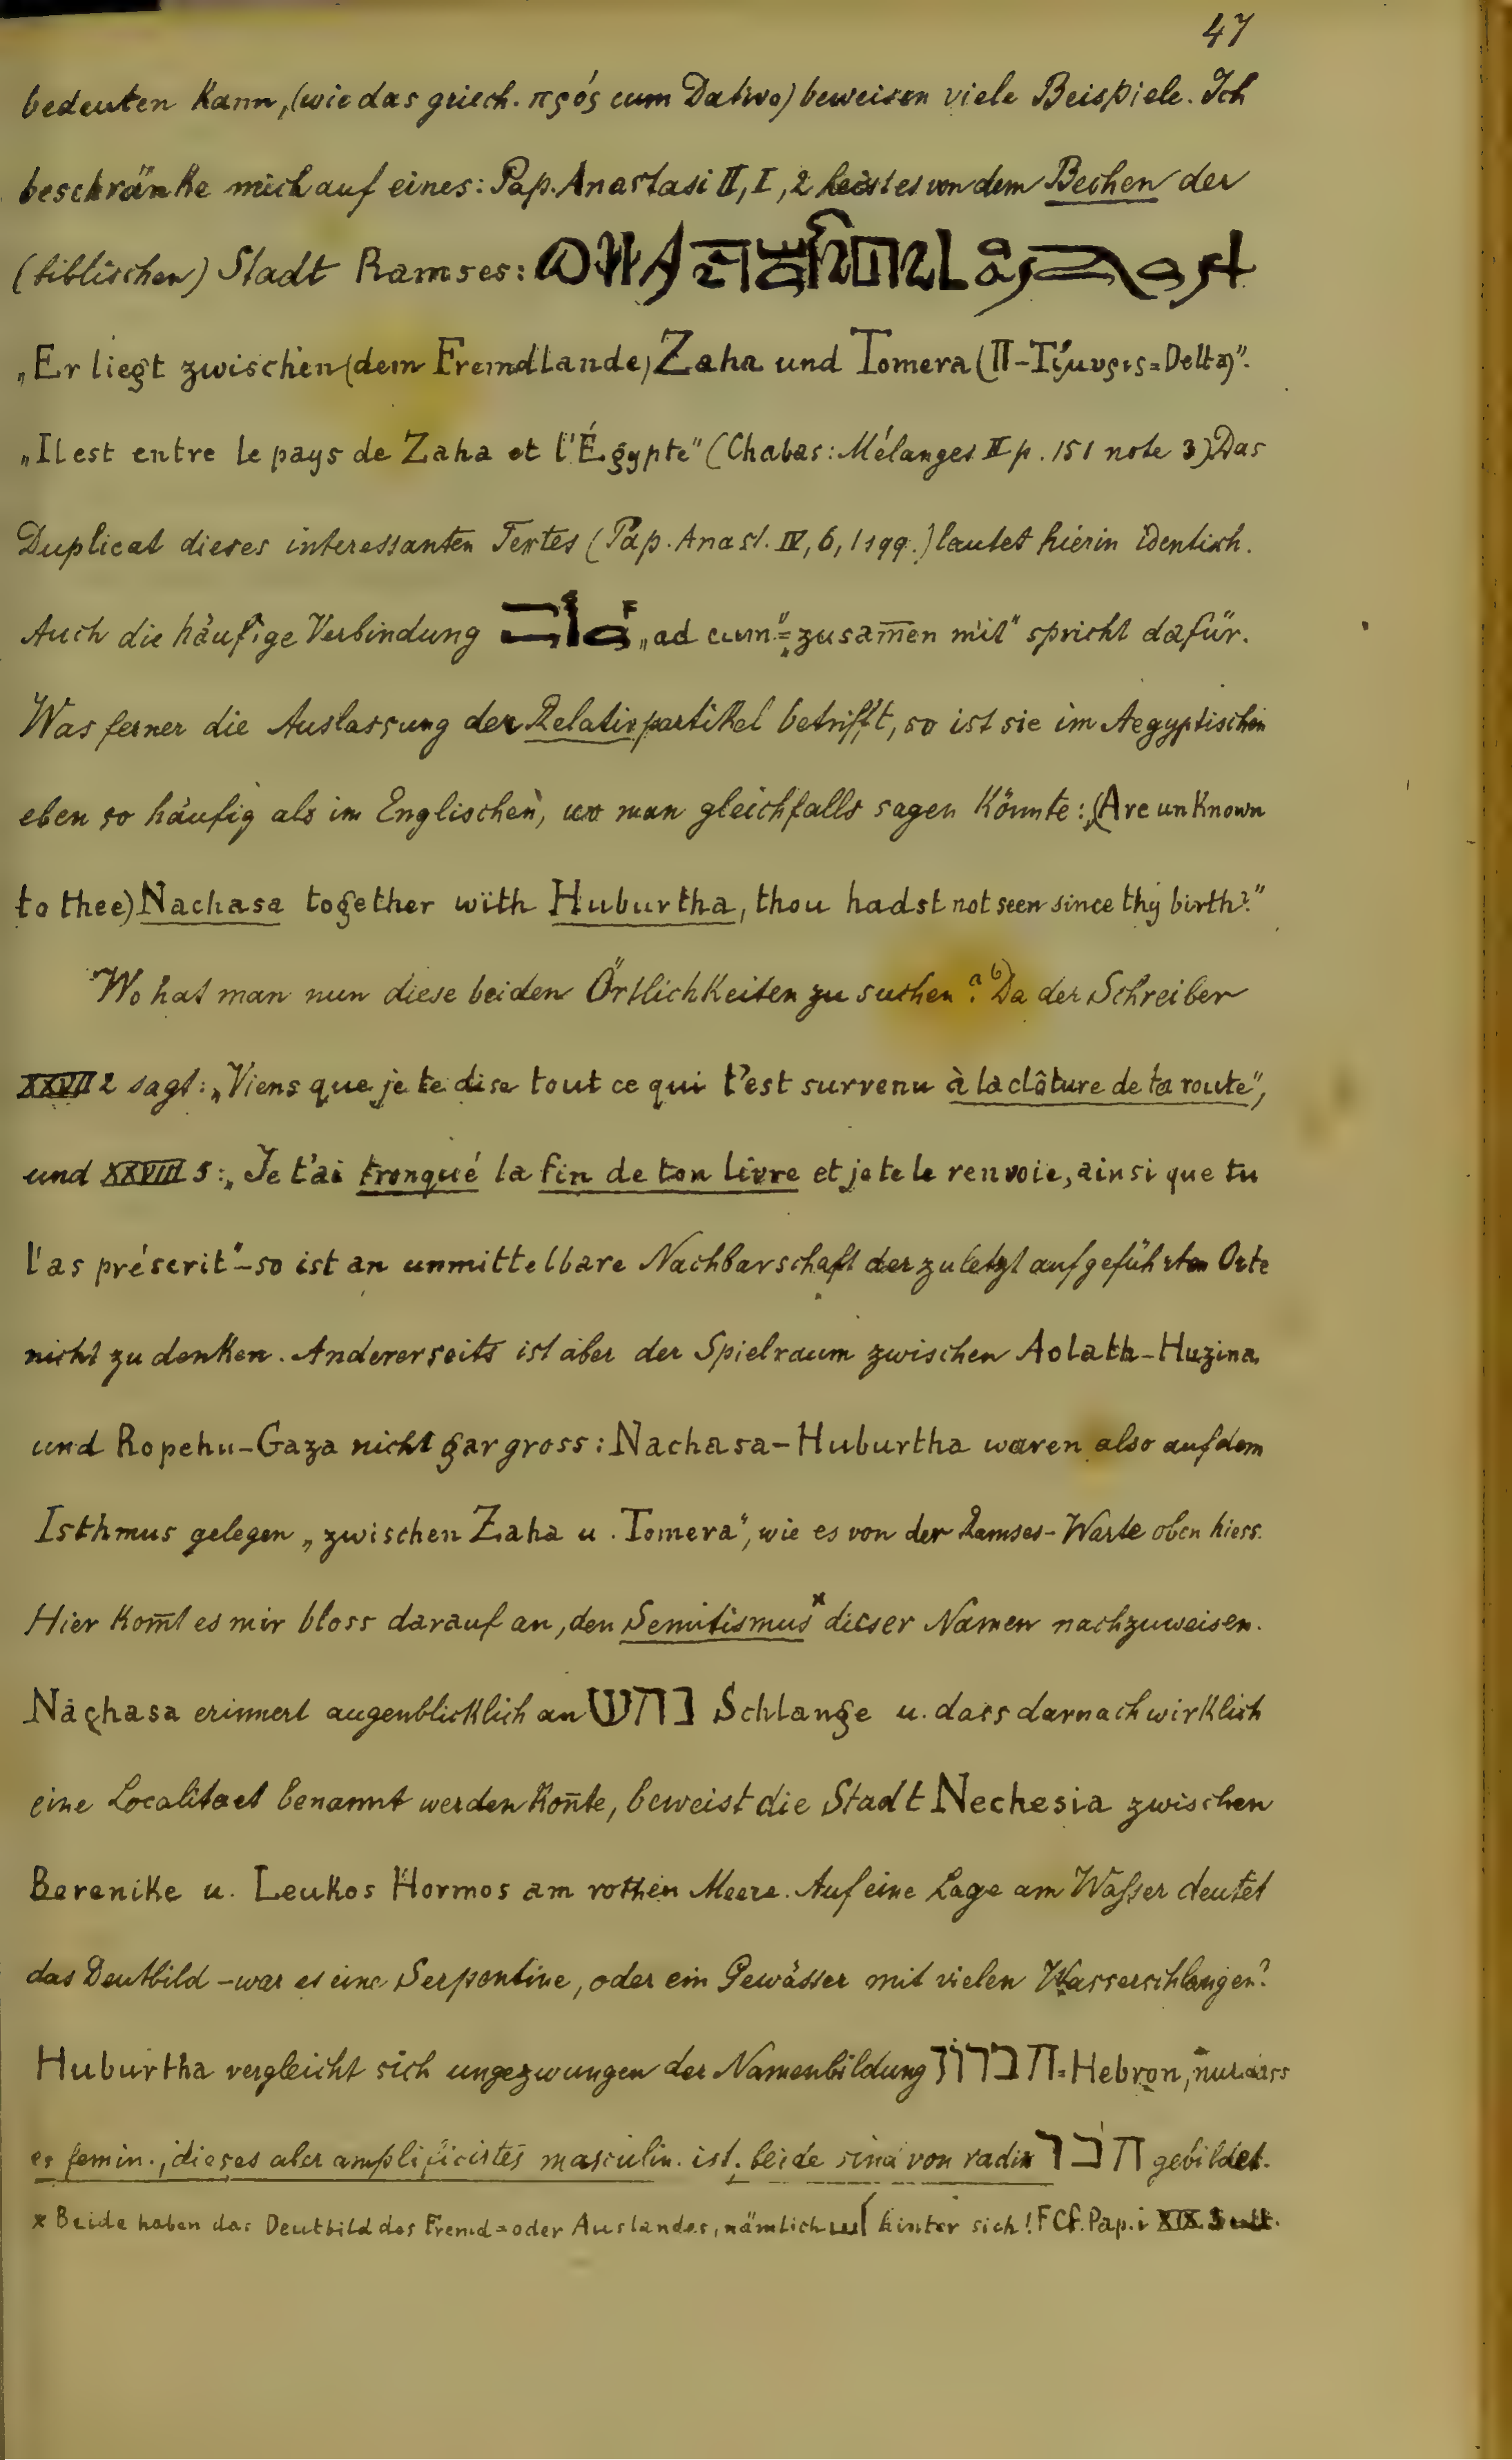 47
bedeuten kann, (wie das griech. πρός cum Dativo) beweisen viele Beispiele. Ich
beschränke mich auf eines: Pap. Anastasi II, I, 2 heisst es von dem Bechen der
(biblischen) Stadt Ramses:
„Er liegt zwischen (dem Fremdlande) Zaha und Tomera (Π-Τίμυρις = Delta)".
„Il est entre le pays de Zaha et l'Égypte" (Chabas: Mélanges II p. 151 note 3) Das
Duplicat dieses interessanten Textes (Pap. Anast. IV, 6, 1 sqq.) lautet hierin identisch.
Auch die häufige Verbindung „ad cum" = „zusam̅en mit" spricht dafür.
Was ferner die Auslassung der Relativpartikel betrifft, so ist sie im Aegyptischen
eben so häufig als im Englischen, wo man gleichfalls sagen könnte: „(Are unknown
to thee) Nachasa together with Huburtha, thou hadst not seen since thy birth?"
Wo hat man nun diese beiden Örtlichkeiten zu suchen? Da der Schreiber
XXVII 2 sagt: „Viens que je te dise tout ce qui t'est survenu à la clôture de ta route",
und XXVIII 5: „Je t'ai tronqué la fin de ton livre et je te le renvoie, ainsi que tu
l'as préscrit" – so ist an unmittelbare Nachbarschaft der zuletzt aufgeführten Orte
nicht zu denken. Andererseits ist aber der Spielraum zwischen Aolath-Huzina
und Ropehu-Gaza nicht gar gross: Nachasa-Huburtha waren also auf dem
Isthmus gelegen „zwischen Zaha u. Tomera", wie es von der Ramses-Warte oben hiess.
Hier kom̅t es mir bloss darauf an, den Semitismus* dieser Namen nachzuweisen.
Nachasa erinnert augenblicklich an נחש Schlange u. dass darnach wirklich
eine Localitaet benannt werden kon̅te, beweist die Stadt Nechesia zwischen
Berenike u. Leukos Hormos am rothen Meere. Auf eine Lage am Wasser deutet
das Deutbild – war es eine Serpentine, oder ein Gewässer mit vielen Wasserschlangen?
Huburtha vergleicht sich ungezwungen der Namenbildung חברון = Hebron, nur dass
es femin., dieses aber amplificirtes masculin. ist; beide sind von radix חבר gebildet.
* Beide haben das Deutbild des Fremd= oder Auslandes, nämlich hinter sich! F Cf. Pap. i XIX